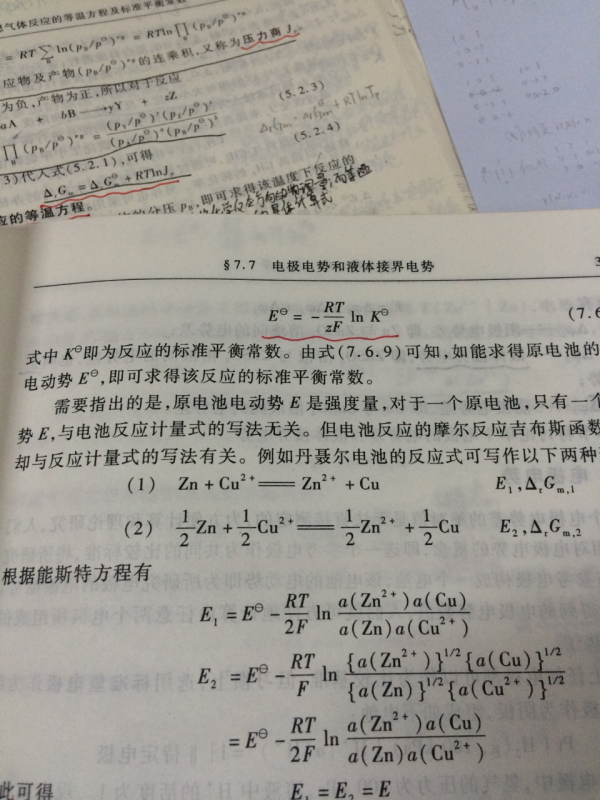 = RT ∑ ln(p_B/p^⊖)^{ν_B} = RT ln ∏ (p_B/p^⊖)^{ν_B}
应物及产物(p_B/p^⊖)^{ν_B}的连乘积,又称为压力商 J_p
为负,产物为正,所以对于反应
aA + bB ⟶ yY + zZ
(5.2.3)
(5.2.4)
3)代入式(5.2.1),可得
Δ_rG_m = Δ_rG_m^⊖ + RTlnJ_p
应的等温方程。
p_B,即可求得该温度下反应的
§7.7 电极电势和液体接界电势 3
E^⊖ = -\frac{RT}{zF} ln K^⊖ (7.6
式中 K^⊖即为反应的标准平衡常数。由式(7.6.9)可知,如能求得原电池的
电动势 E^⊖,即可求得该反应的标准平衡常数。
需要指出的是,原电池电动势 E 是强度量,对于一个原电池,只有一个
势 E,与电池反应计量式的写法无关。但电池反应的摩尔反应吉布斯函数
却与反应计量式的写法有关。例如丹聂尔电池的反应式可写作以下两种
(1) Zn + Cu^{2+} ═══ Zn^{2+} + Cu E_1, Δ_rG_{m,1}
(2) \frac{1}{2}Zn + \frac{1}{2}Cu^{2+} ═══ \frac{1}{2}Zn^{2+} + \frac{1}{2}Cu E_2, Δ_rG_{m,2}
根据能斯特方程有
E_1 = E^⊖ - \frac{RT}{2F} ln \frac{a(Zn^{2+})a(Cu)}{a(Zn)a(Cu^{2+})}
E_2 = E^⊖ - \frac{RT}{F} ln \frac{\{a(Zn^{2+})\}^{1/2}\{a(Cu)\}^{1/2}}{\{a(Zn)\}^{1/2}\{a(Cu^{2+})\}^{1/2}}
= E^⊖ - \frac{RT}{2F} ln \frac{a(Zn^{2+})a(Cu)}{a(Zn)a(Cu^{2+})}
此可得 E_1 = E_2 = E